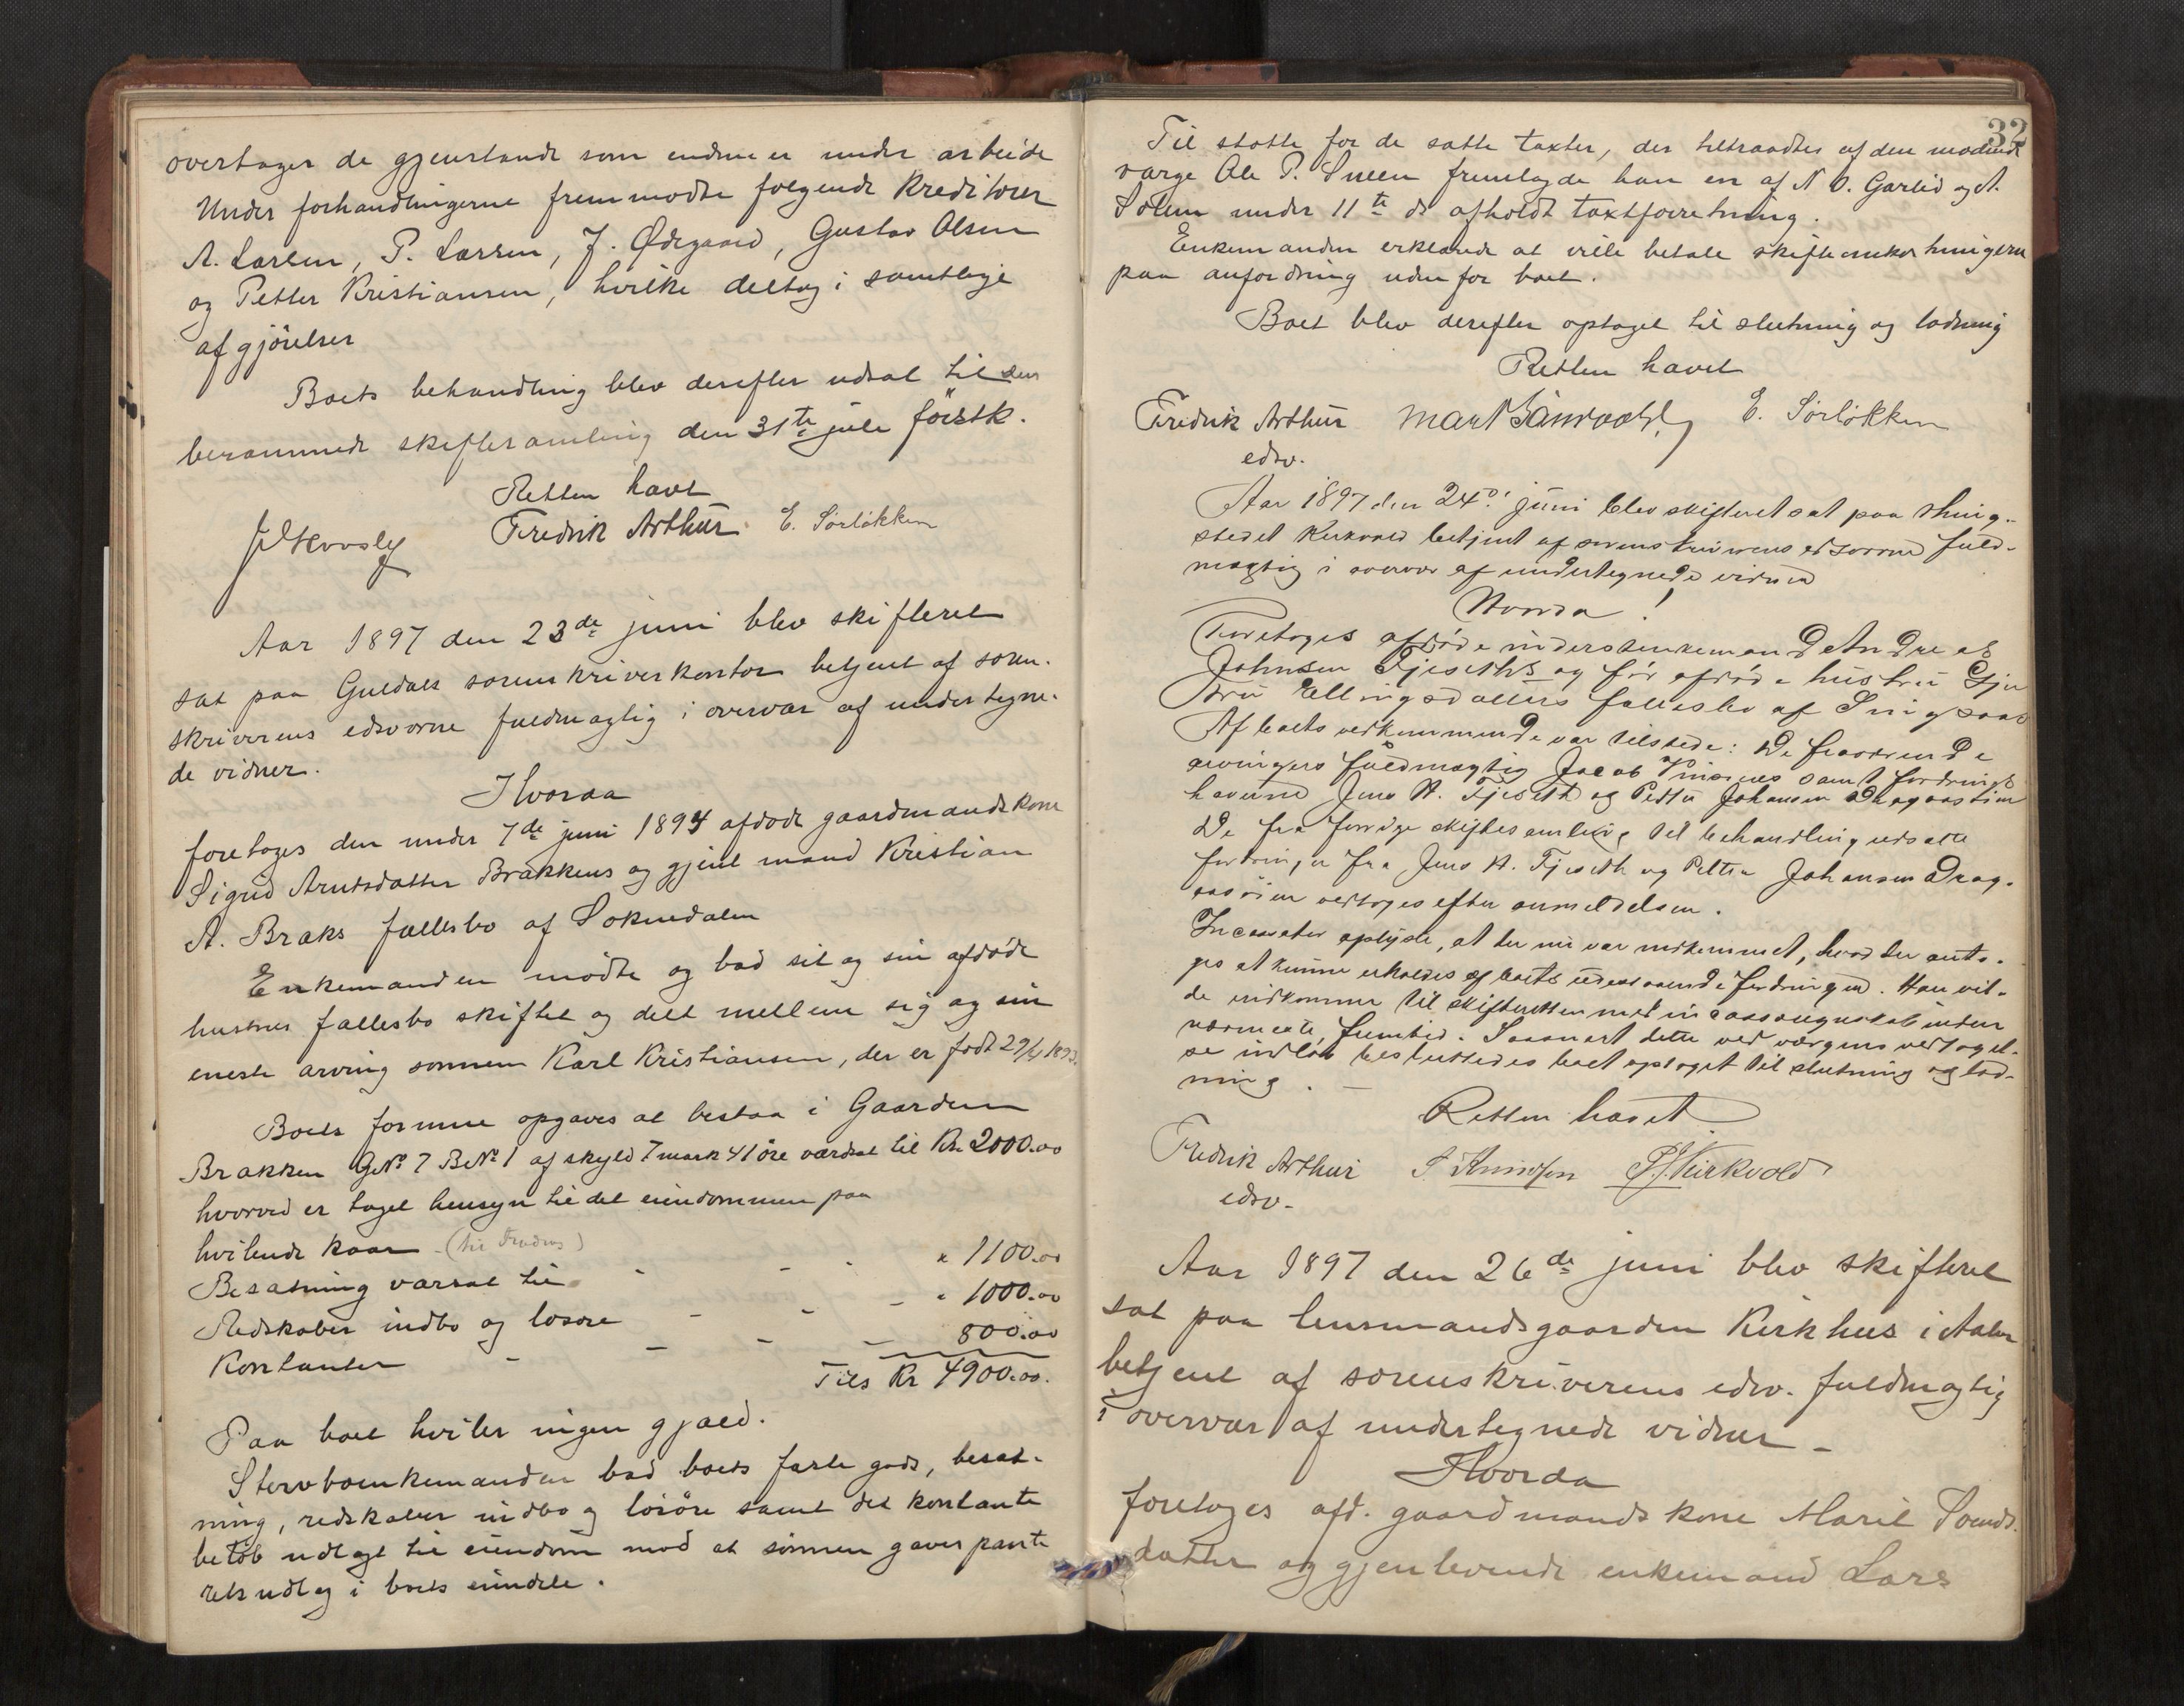 overtager de gjenstande som endnu er under arbeide
Under forhandlingerne fremmødte følgende kreditorer
A. Larsen, P. Larsen, J. Ødegaard, Gustav Olsen
og Petter Kristiansen, hvilke deltog i samtlige
afgjörelser
Boets behandling blev derefter udsat til den
berammede skiftesamling den 31te juli förstk.
Retten hævet
Fredrik Arthur E. Sørløkken
Aar 1897 den 23de juni blev skifteret
sat paa Guldals sorenskriverkontor betjent af soren-
skriverens edsvorne fuldmægtig i overvær af undertegne-
de vidner.
Hvorda
foretoges den under 7de juni 1894 afdøde gaardmandskone
Sigrid Arntsdatter Brækkens og gjenl mand Kristian
A. Bræks fællesbo af Soknedalen
Enkemanden mødte og bad sit og sin afdøde
hustrus fællesbo skiftet og delt mellem sig og sin
eneste arving sønnen Karl Kristiansen, der er født 29/4 1893.
Boets formue opgaves at bestaa i Gaarden
Brækken GNo 7 BNo 1 af skyld 7 mark 41 öre værdsat til Kr. 2000.00
hvorved er taget hensyn til det eiendommen paa
hvilende kaar
Besætning værsat til - - - " 1100.00
Redskaber indbo og løsøre - - - " 1000.00
Kontanter - - - 800.00
Tils Kr 4900.00.
Paa boet hviler ingen gjæld.
Stervboenkemanden bad boets faste gods, besæt-
ning, redskaber indbo og løsöre samt det kontante
beløb udlagt til eiendom mod at sönnen gaves pante
rets udlæg i boets eiendele.
32
Til støtte for de satte taxter, der tiltraadtes af den mødende
værge Ole P. Sneen fremlagde han en af N O. Garlid og A.
Solem under 11te ds afholdt taxtforretning.
Enkemanden erklærede at ville betale skifteomkostningerne
paa anfordring udenfor boet.
Boet blev derefter optaget til slutning og lodning
Retten hævet
Fredrik Arthur E. Sørløkken
edsv.
Aar 1897 den 24de juni blev skifteret sat paa thing-
stedet Kirkvold betjent af sorenskriverens edsvorne fuld-
mægtig i overvær af undertegnede vidner
Hvorda!
Foretoges afdøde inderstenkemand Andreas
Johnsen Fjeseths og før afdøde hustru Gju
dru Ellingsdatters fællesbo af Singsaas
Af boets vedkommende var tilstede: De fraværende
arvingers fuldmægtig Jacob samt fordrings
haverne Jens A. Fjeseth og Petter Johansen Dragaasøien
De fra forrige skiftesamling til behandling udsatte
fordringer fra Jens A. Fjeseth og Petter Johansen Drag-
aasöien vedtoges efter anmeldelsen.
Incassator oplyste, at der nu var indkommet, hvad der anto-
ges at kunne erholdes af boets udestaaende fordringer. Han vil-
de indkomme til skifteretten med incassoregnskab inden
nærmeste fremtid. Saasnart dette ved værgens vedtagel-
se indløb besluttedes boet optaget til slutning og lod-
ning. —
Retten hævet
Fredrik Arthur J. Knudsen Kirkvold
edsv.
Aar 1897 den 26de juni blev skifteret
sat paa lensmandsgaarden Kirkhus i Aalen
betjent af sorenskriverens edsv. fuldmægtig
i overvær af undertegnede vidner -
Hvorda
foretoges afd. gaardmandskone Marit Svends
datter og gjenlevende enkemand Lars